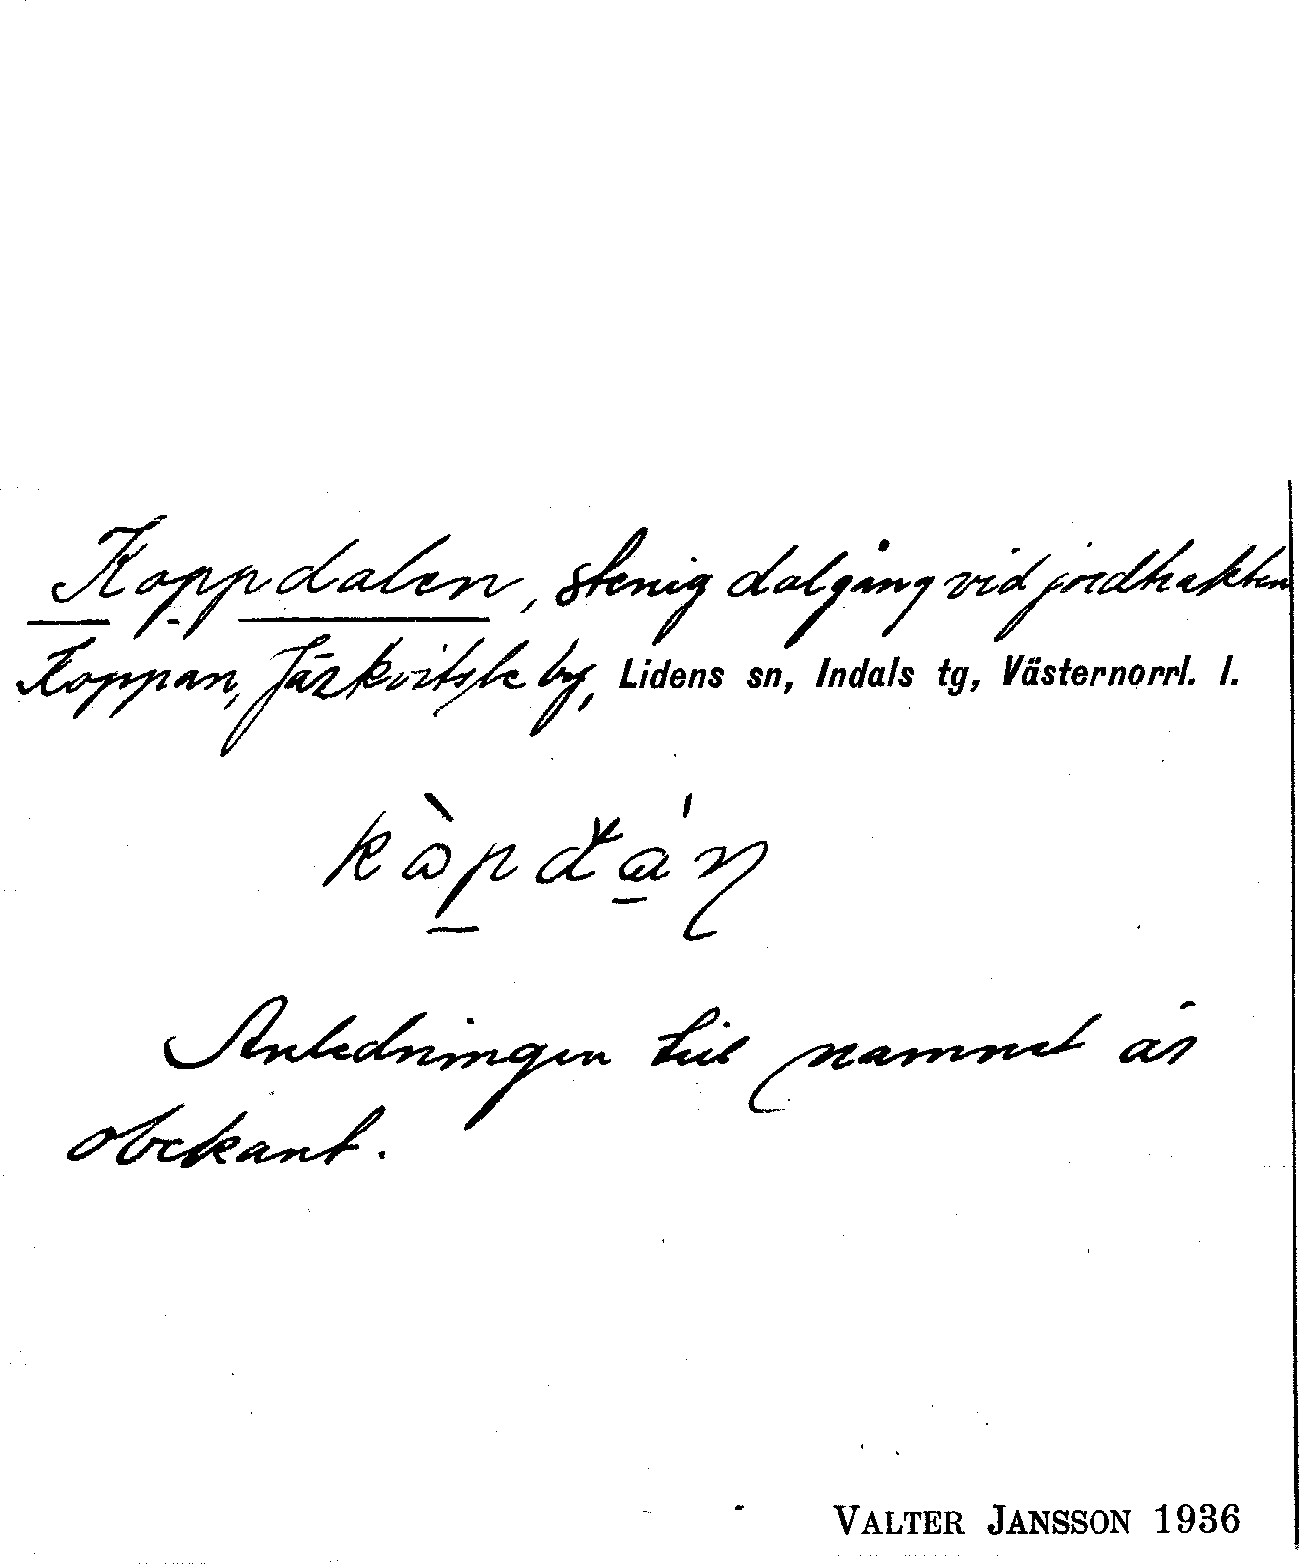 Koppdalen, stenig dalgång vid jordtrakten
Koppan, Järkvitsle by, Lidens sn, Indals tg, Västernorrl. l.
Anledningen till namnet är
obekant.
VALTER JANSSON 1936